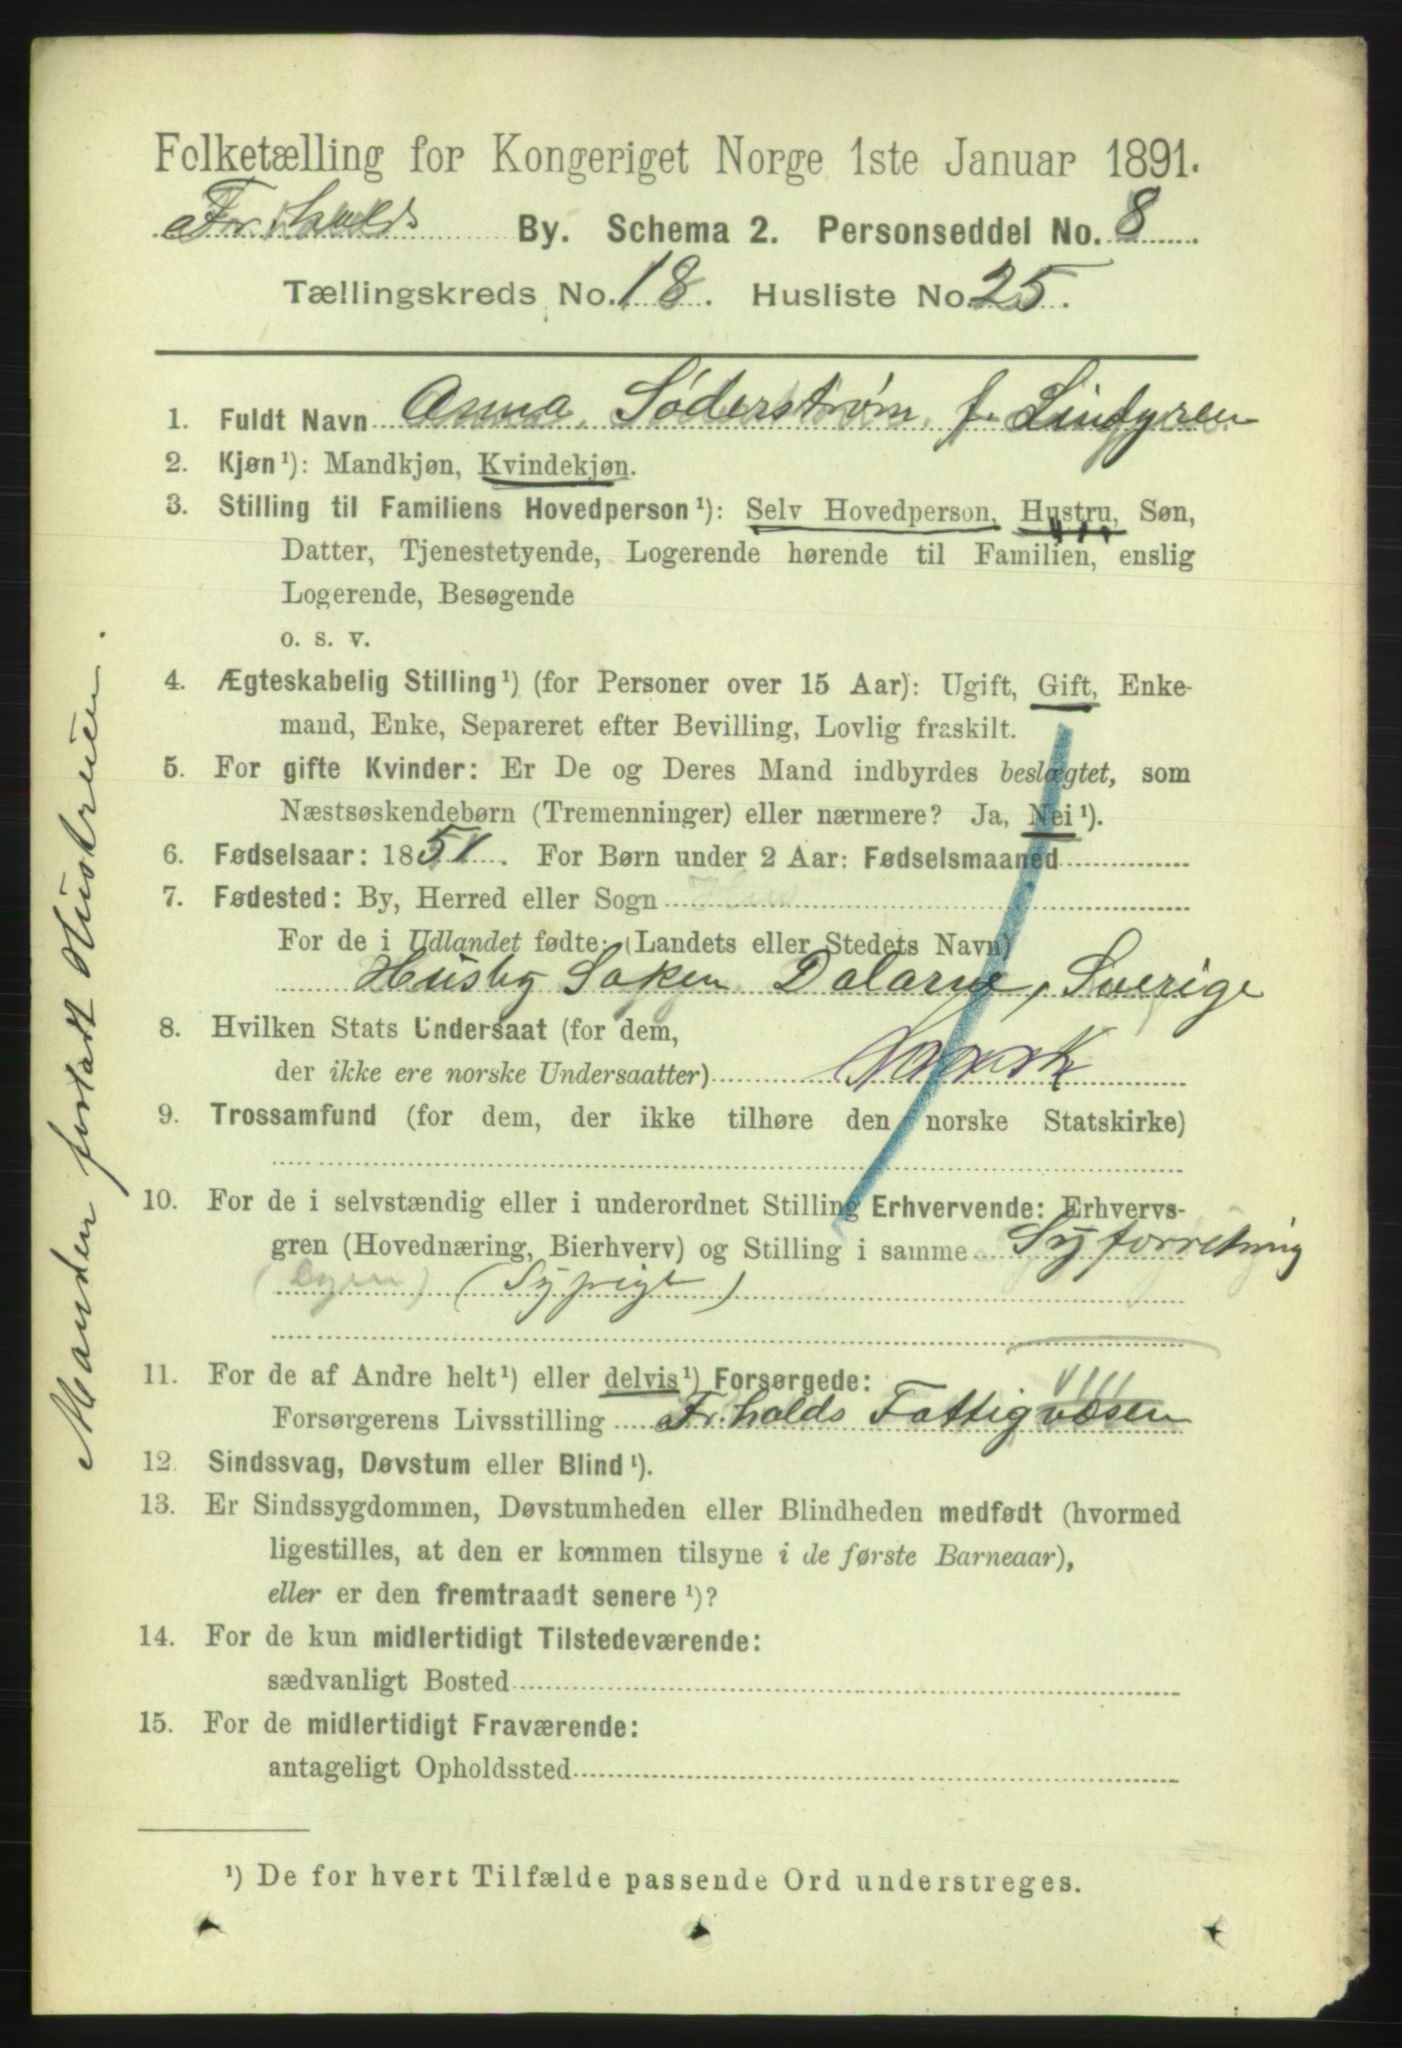 Folketælling for Kongeriget Norge 1ste Januar 1891.
Fr.halds By. Schema 2. Personseddel No. 8
Tællingskreds No. 18. Husliste No. 25.
1. Fuldt Navn Anna Søderstrøm f. Lindgren
2. Kjøn¹): Mandkjøn, Kvindekjøn.
3. Stilling til Familiens Hovedperson¹): Selv Hovedperson, Hustru, Søn,
Datter, Tjenestetyende, Logerende hørende til Familien, enslig
Logerende, Besøgende
o. s. v.
4. Ægteskabelig Stilling¹) (for Personer over 15 Aar): Ugift, Gift, Enke-
mand, Enke, Separeret efter Bevilling, Lovlig fraskilt.
5. For gifte Kvinder: Er De og Deres Mand indbyrdes beslægtet, som
Næstsøskendebørn (Tremenninger) eller nærmere? Ja, Nei¹).
6. Fødselsaar: 1851. For Børn under 2 Aar: Fødselsmaaned
7. Fødested: By, Herred eller Sogn
For de i Udlandet fødte: (Landets eller Stedets Navn)
Husby Soken Dalarne, Sverige
8. Hvilken Stats Undersaat (for dem,
der ikke ere norske Undersaatter) Norsk
9. Trossamfund (for dem, der ikke tilhøre den norske Statskirke)
10. For de i selvstændig eller i underordnet Stilling Erhvervende: Erhvervs-
gren (Hovednæring, Bierhverv) og Stilling i samme Syforretning
(Egen) (Sypige)
11. For de af Andre helt¹) eller delvis¹) Forsørgede:
Forsørgerens Livsstilling Fr.halds Fattigvæsen
12. Sindssvag, Døvstum eller Blind¹).
13. Er Sindssygdommen, Døvstumheden eller Blindheden medfødt (hvormed
ligestilles, at den er kommen tilsyne i de første Barneaar),
eller er den fremtraadt senere¹)?
14. For de kun midlertidigt Tilstedeværende:
sædvanligt Bosted
15. For de midlertidigt Fraværende:
antageligt Opholdssted
¹) De for hvert Tilfælde passende Ord understreges.
Manden forladt Hustruen.